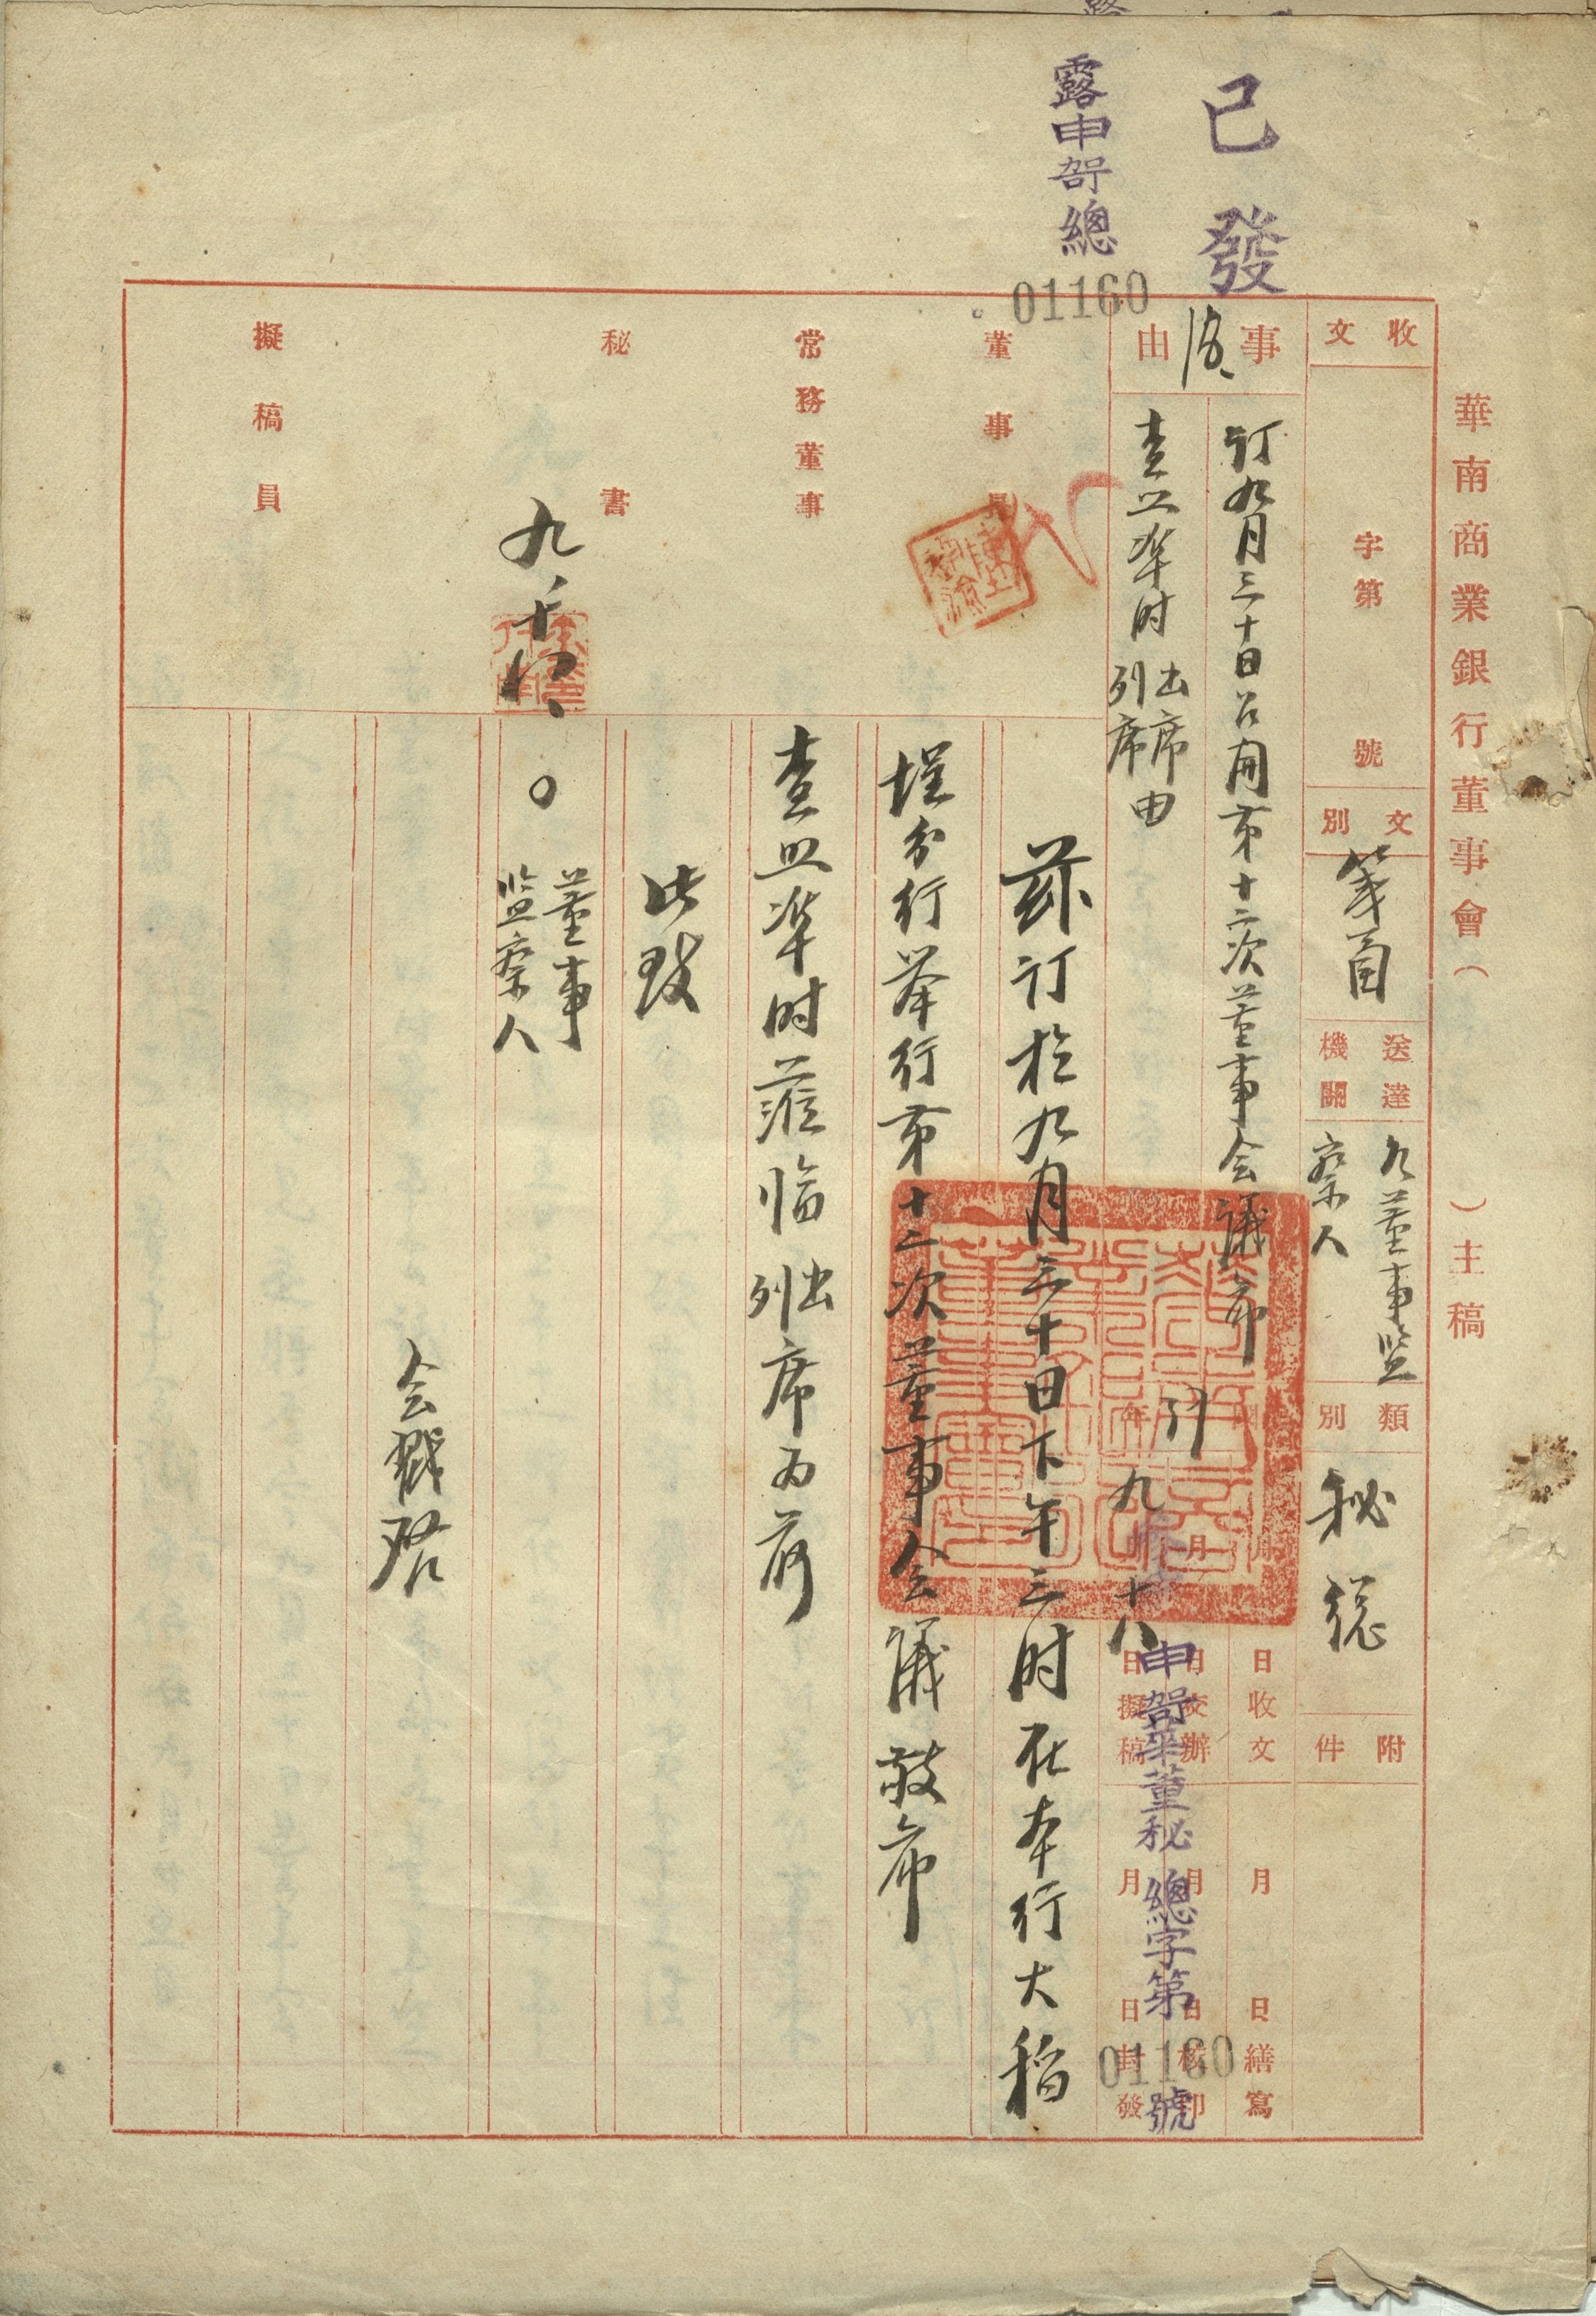 已發
露申哿總
01160
華南商業銀行董事會（　）主稿
收文
字第　號
文別
箋函
送達機關
各董事監察人
類別
秘總
附件
事由
訂九月三十日召開第十二次董事会議希
查照準时出席列席由
年
九月十八日擬稿
月　日交辦
月　日收文
月　日繕寫
月　日核印
月　日封發
申哿華董秘總字第01160號
董事長
常務董事
秘書
九、十八、
擬稿員
茲訂於九月三十日下午三时在本行大稻
埕分行举行第十二次董事会議敬希
查照準时蒞临出列席为荷
此致
董事
監察人
会戳啓